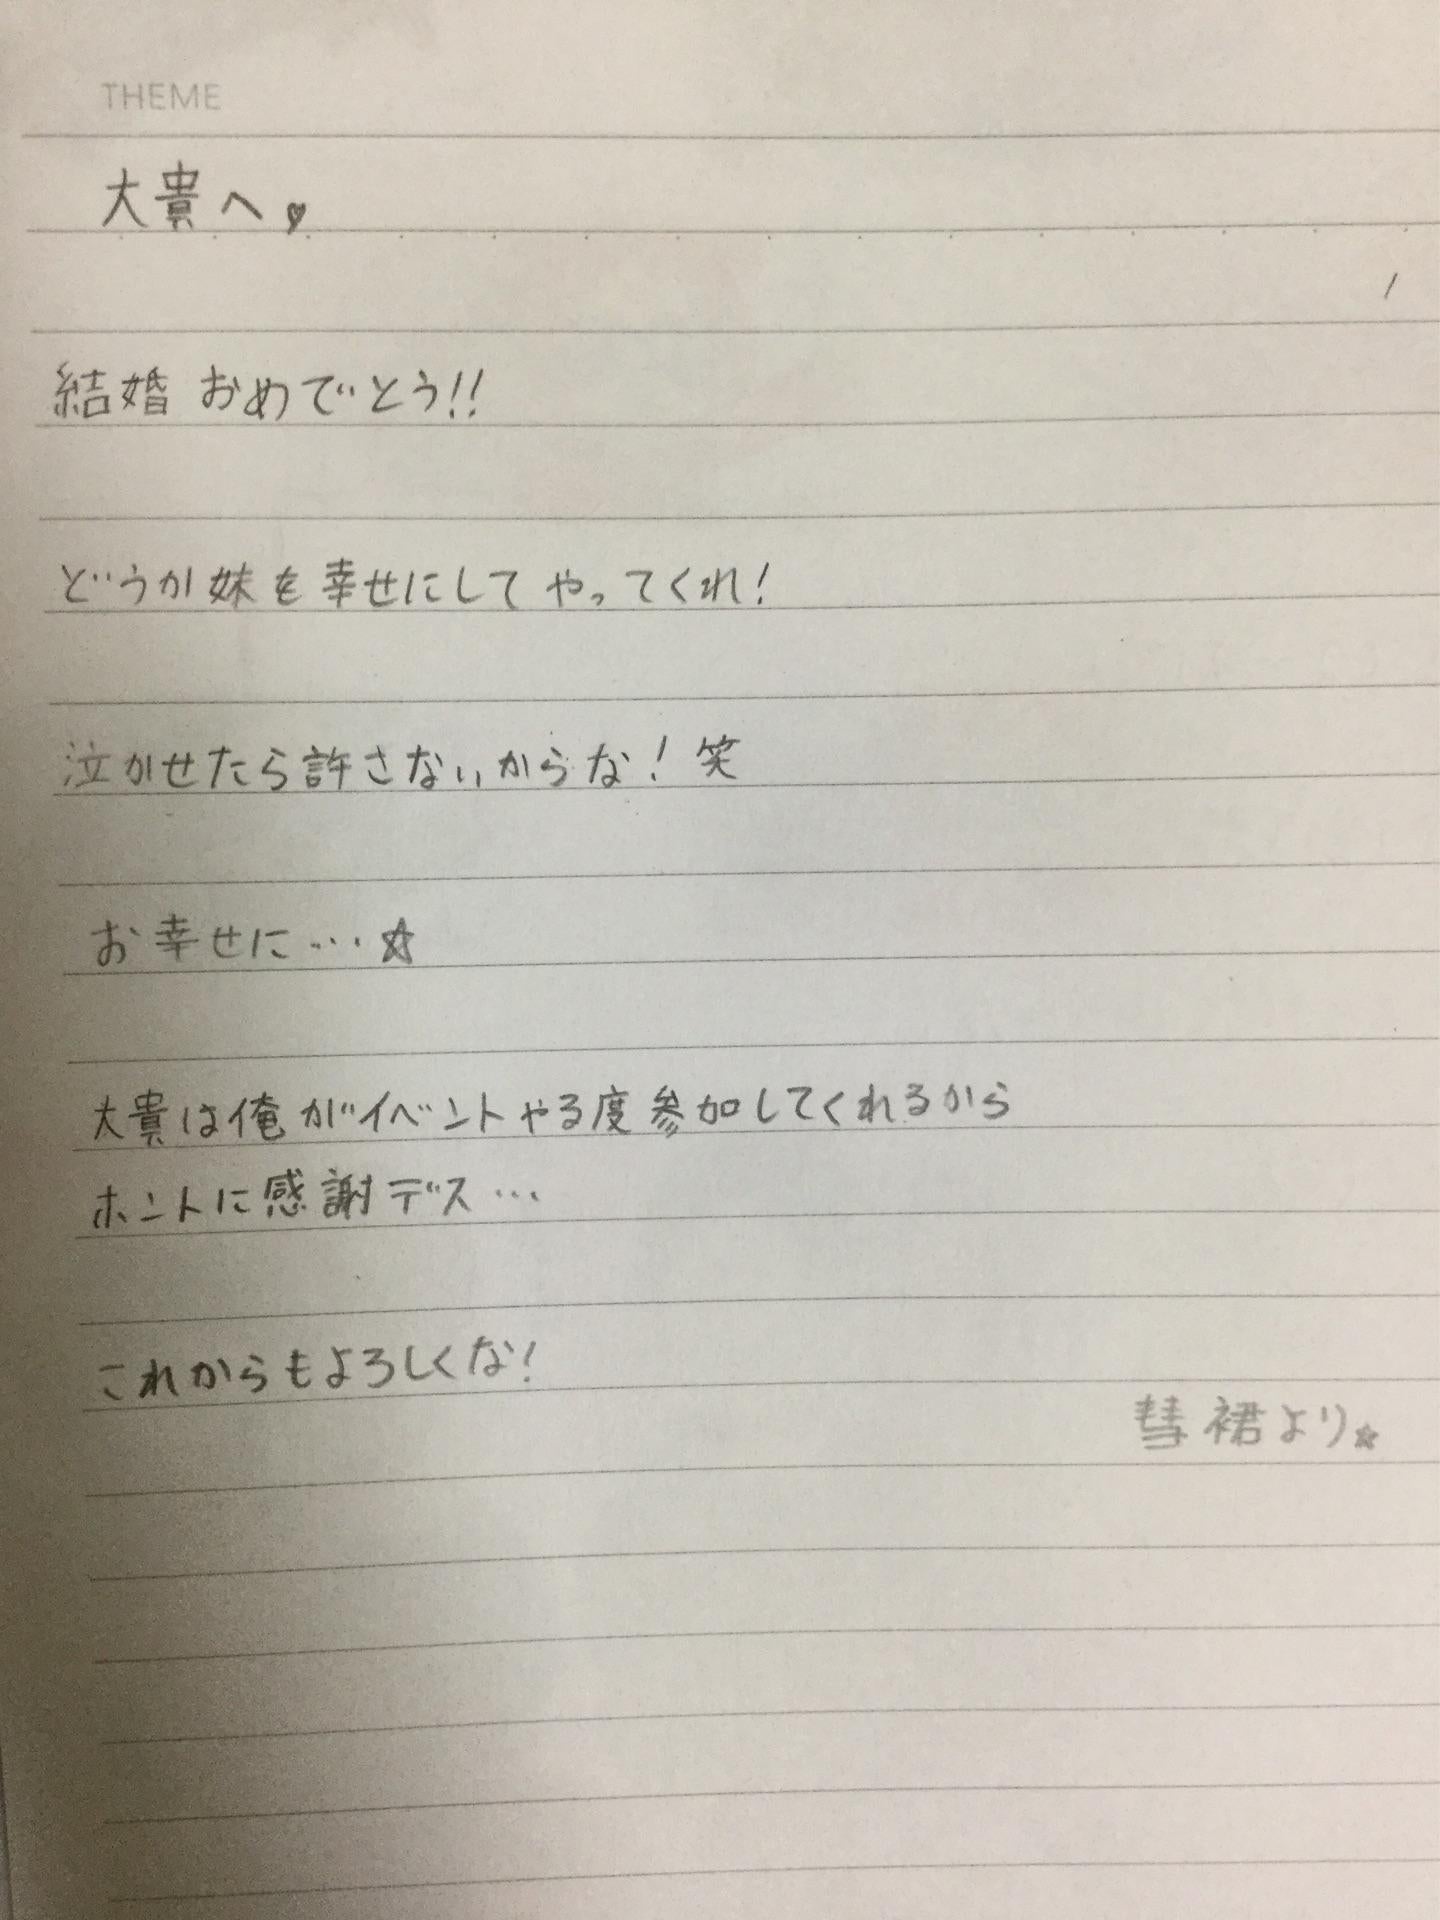 THEME
大貴へ♥
結婚おめでとう!!
どうか妹を幸せにしてやってくれ!
泣かせたら許さないからな!笑
お幸せに…☆
大貴は俺がイベントやる度参加してくれるから
ホントに感謝デス…
これからもよろしくな!
彗裙より☆